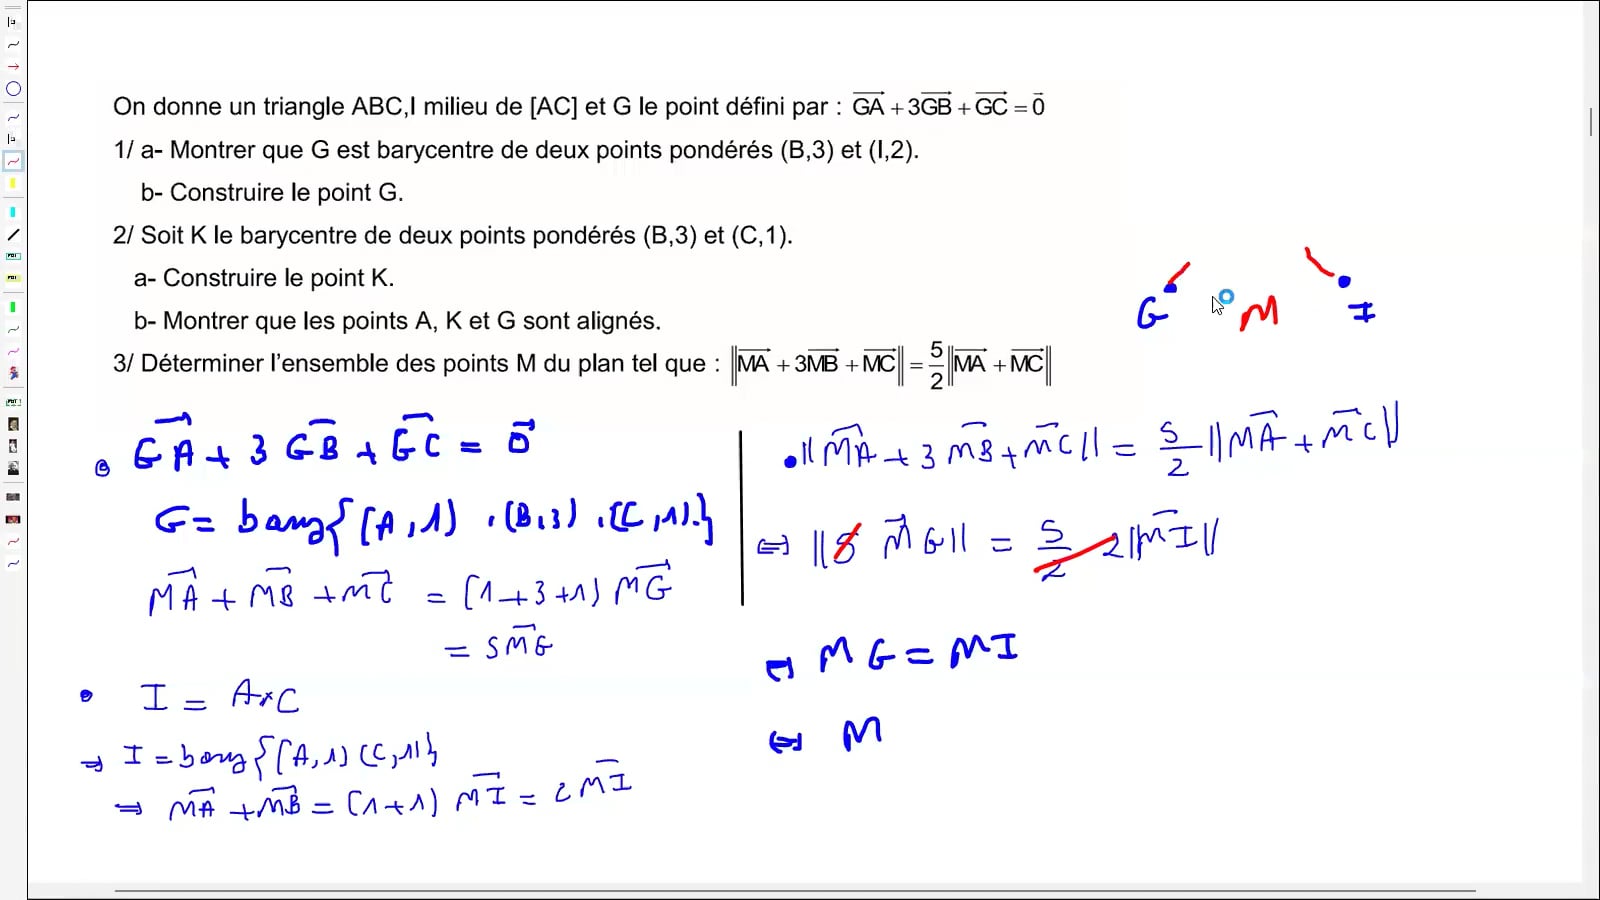 On donne un triangle ABC,I milieu de [AC] et G le point défini par : GA + 3GB + GC = 0
1/ a- Montrer que G est barycentre de deux points pondérés (B,3) et (I,2).
b- Construire le point G.
2/ Soit K le barycentre de deux points pondérés (B,3) et (C,1).
a- Construire le point K.
b- Montrer que les points A, K et G sont alignés.
3/ Déterminer l'ensemble des points M du plan tel que : ||MA + 3MB + MC|| = 5/2 ||MA + MC||
G M I
GA + 3 GB + GC = 0
G = bary{(A,1), (B,3), (C,1)}
MA + MB + MC = (1+3+1) MG
= 5MG
I = A*C
⇒ I = bary{(A,1) (C,1)}
⇒ MA + MB = (1+1) MI = 2MI
||MA + 3MB + MC|| = 5/2 ||MA + MC||
⇔ ||5 MG|| = 5/2 2||MI||
⇔ MG = MI
⇔ M